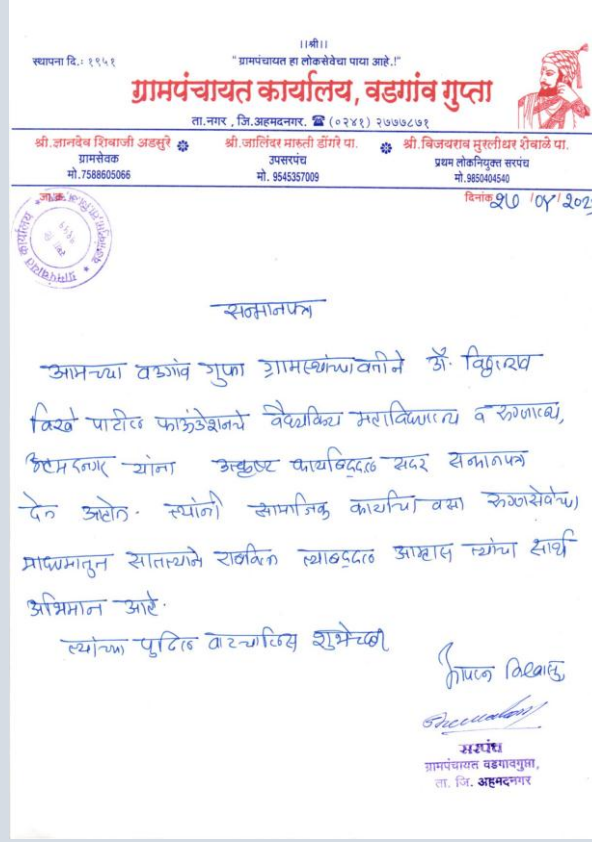 ||श्री||
स्थापना दि.: १९५१
"ग्रामपंचायत हा लोकसेवेचा पाया आहे.!"
ग्रामपंचायत कार्यालय, वडगांव गुप्ता
ता.नगर , जि.अहमदनगर. ☎ (०२४१) २७७७८७१
श्री.ज्ञानदेव शिवाजी अडसुरे श्री.जालिंदर मारुती डोंगरे पा. श्री.विजयराव मुरलीधर शेबाळे पा.
ग्रामसेवक उपसरपंच प्रथम लोकनियुक्त सरपंच
मो.7588605066 मो. 9545357009 मो.9850404540
जा.क्र. दिनांक
सन्मानपत्र
आमच्या वडगांव गुप्ता ग्रामस्थांच्या वतीने डॉ. विठ्ठलराव
विखे पाटील फाऊंडेशनचे वैद्यकिय महाविद्यालय व रुग्णालय,
अहमदनगर यांना उत्कृष्ट कार्याबद्दल सदर सन्मानपत्र
देत आहोत. त्यांनी सामाजिक कार्याचा वसा रुग्णसेवेच्या
माध्यमातुन सातत्याने राबविला त्याबद्दल आम्हास त्यांचा सार्थ
अभिमान आहे.
त्यांच्या पुढिल वाटचालिस शुभेच्छा
आपला विश्वासु
सरपंच
ग्रामपंचायत वडगावगुप्ता,
ता. जि. अहमदनगर